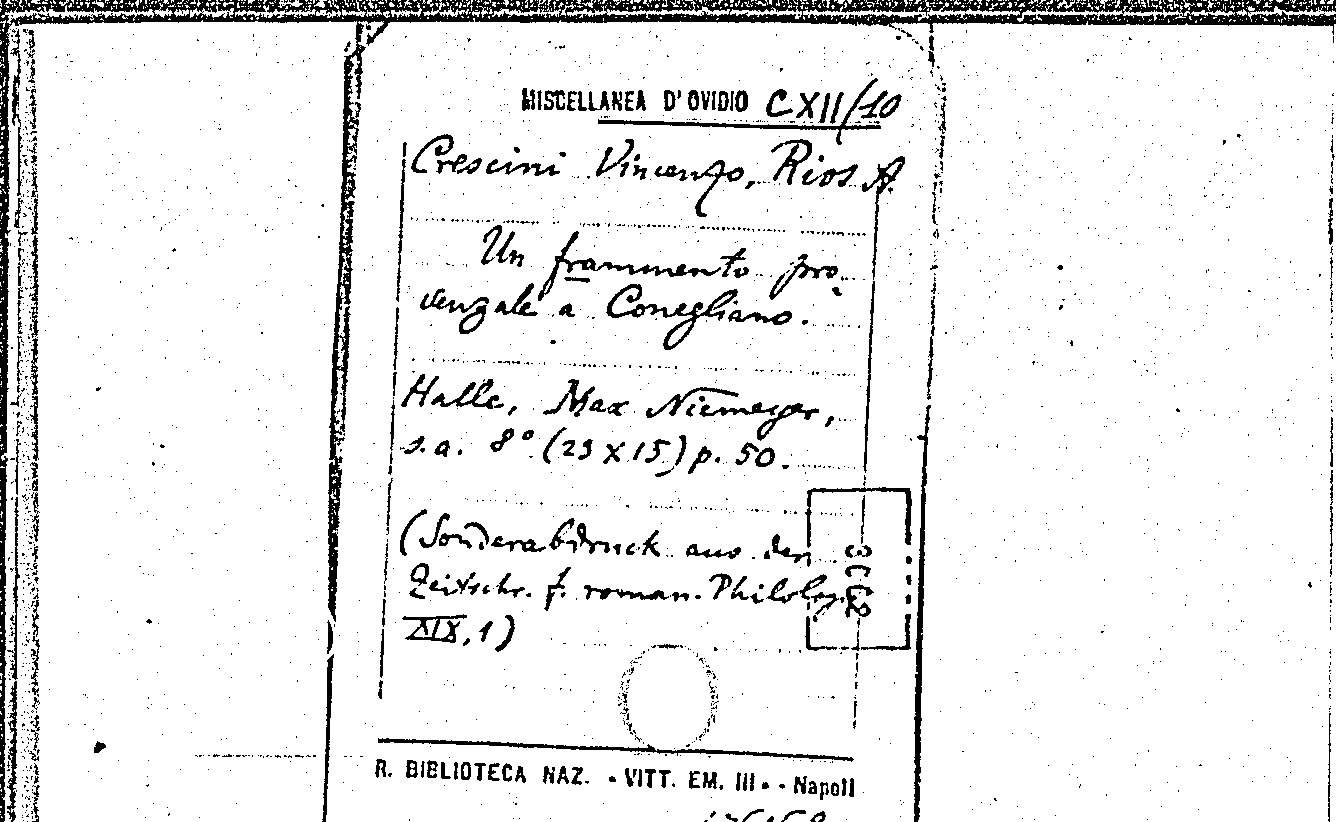 MISCELLANEA D'OVIDIO CXII/10
Crescini Vincenzo, Rios A.
Un frammento pro-
venzale a Conegliano.
Halle, Max Niemeyer,
s.a. 8° (23 x 15) p. 50.
(Sonderabdruck aus der
Zeitschr. f. roman. Philolog.
XIX, 1)
R. BIBLIOTECA NAZ. - VITT. EM. III - - Napoli